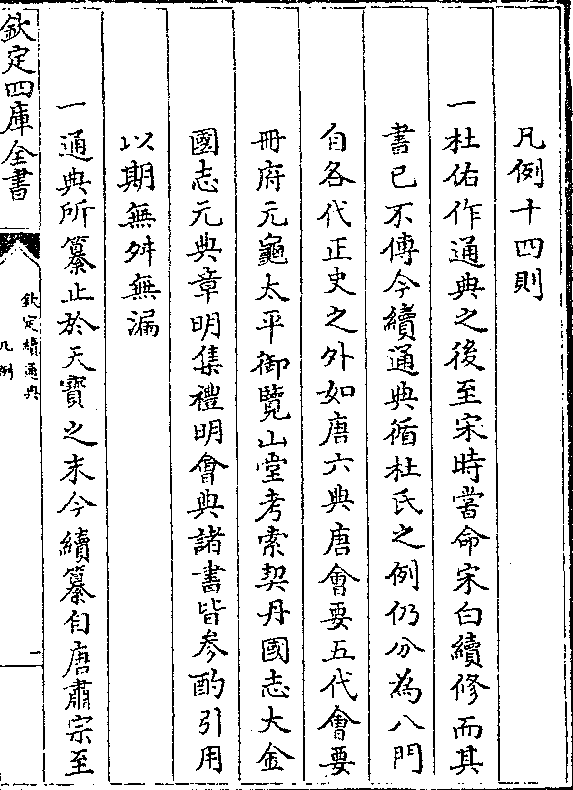 凡例十四則
一杜佑作通典之後至宋時嘗命宋白續修而其
書已不傳今續通典循杜氏之例仍分為八門
自各代正史之外如唐六典唐會要五代會要
冊府元龜太平御覽山堂考索契丹國志大金
國志元典章明集禮明會典諸書皆參酌引用
以期無舛無漏
一通典所纂止於天寶之末今續纂自唐肅宗至
欽定四庫全書
欽定續通典
凡例
一